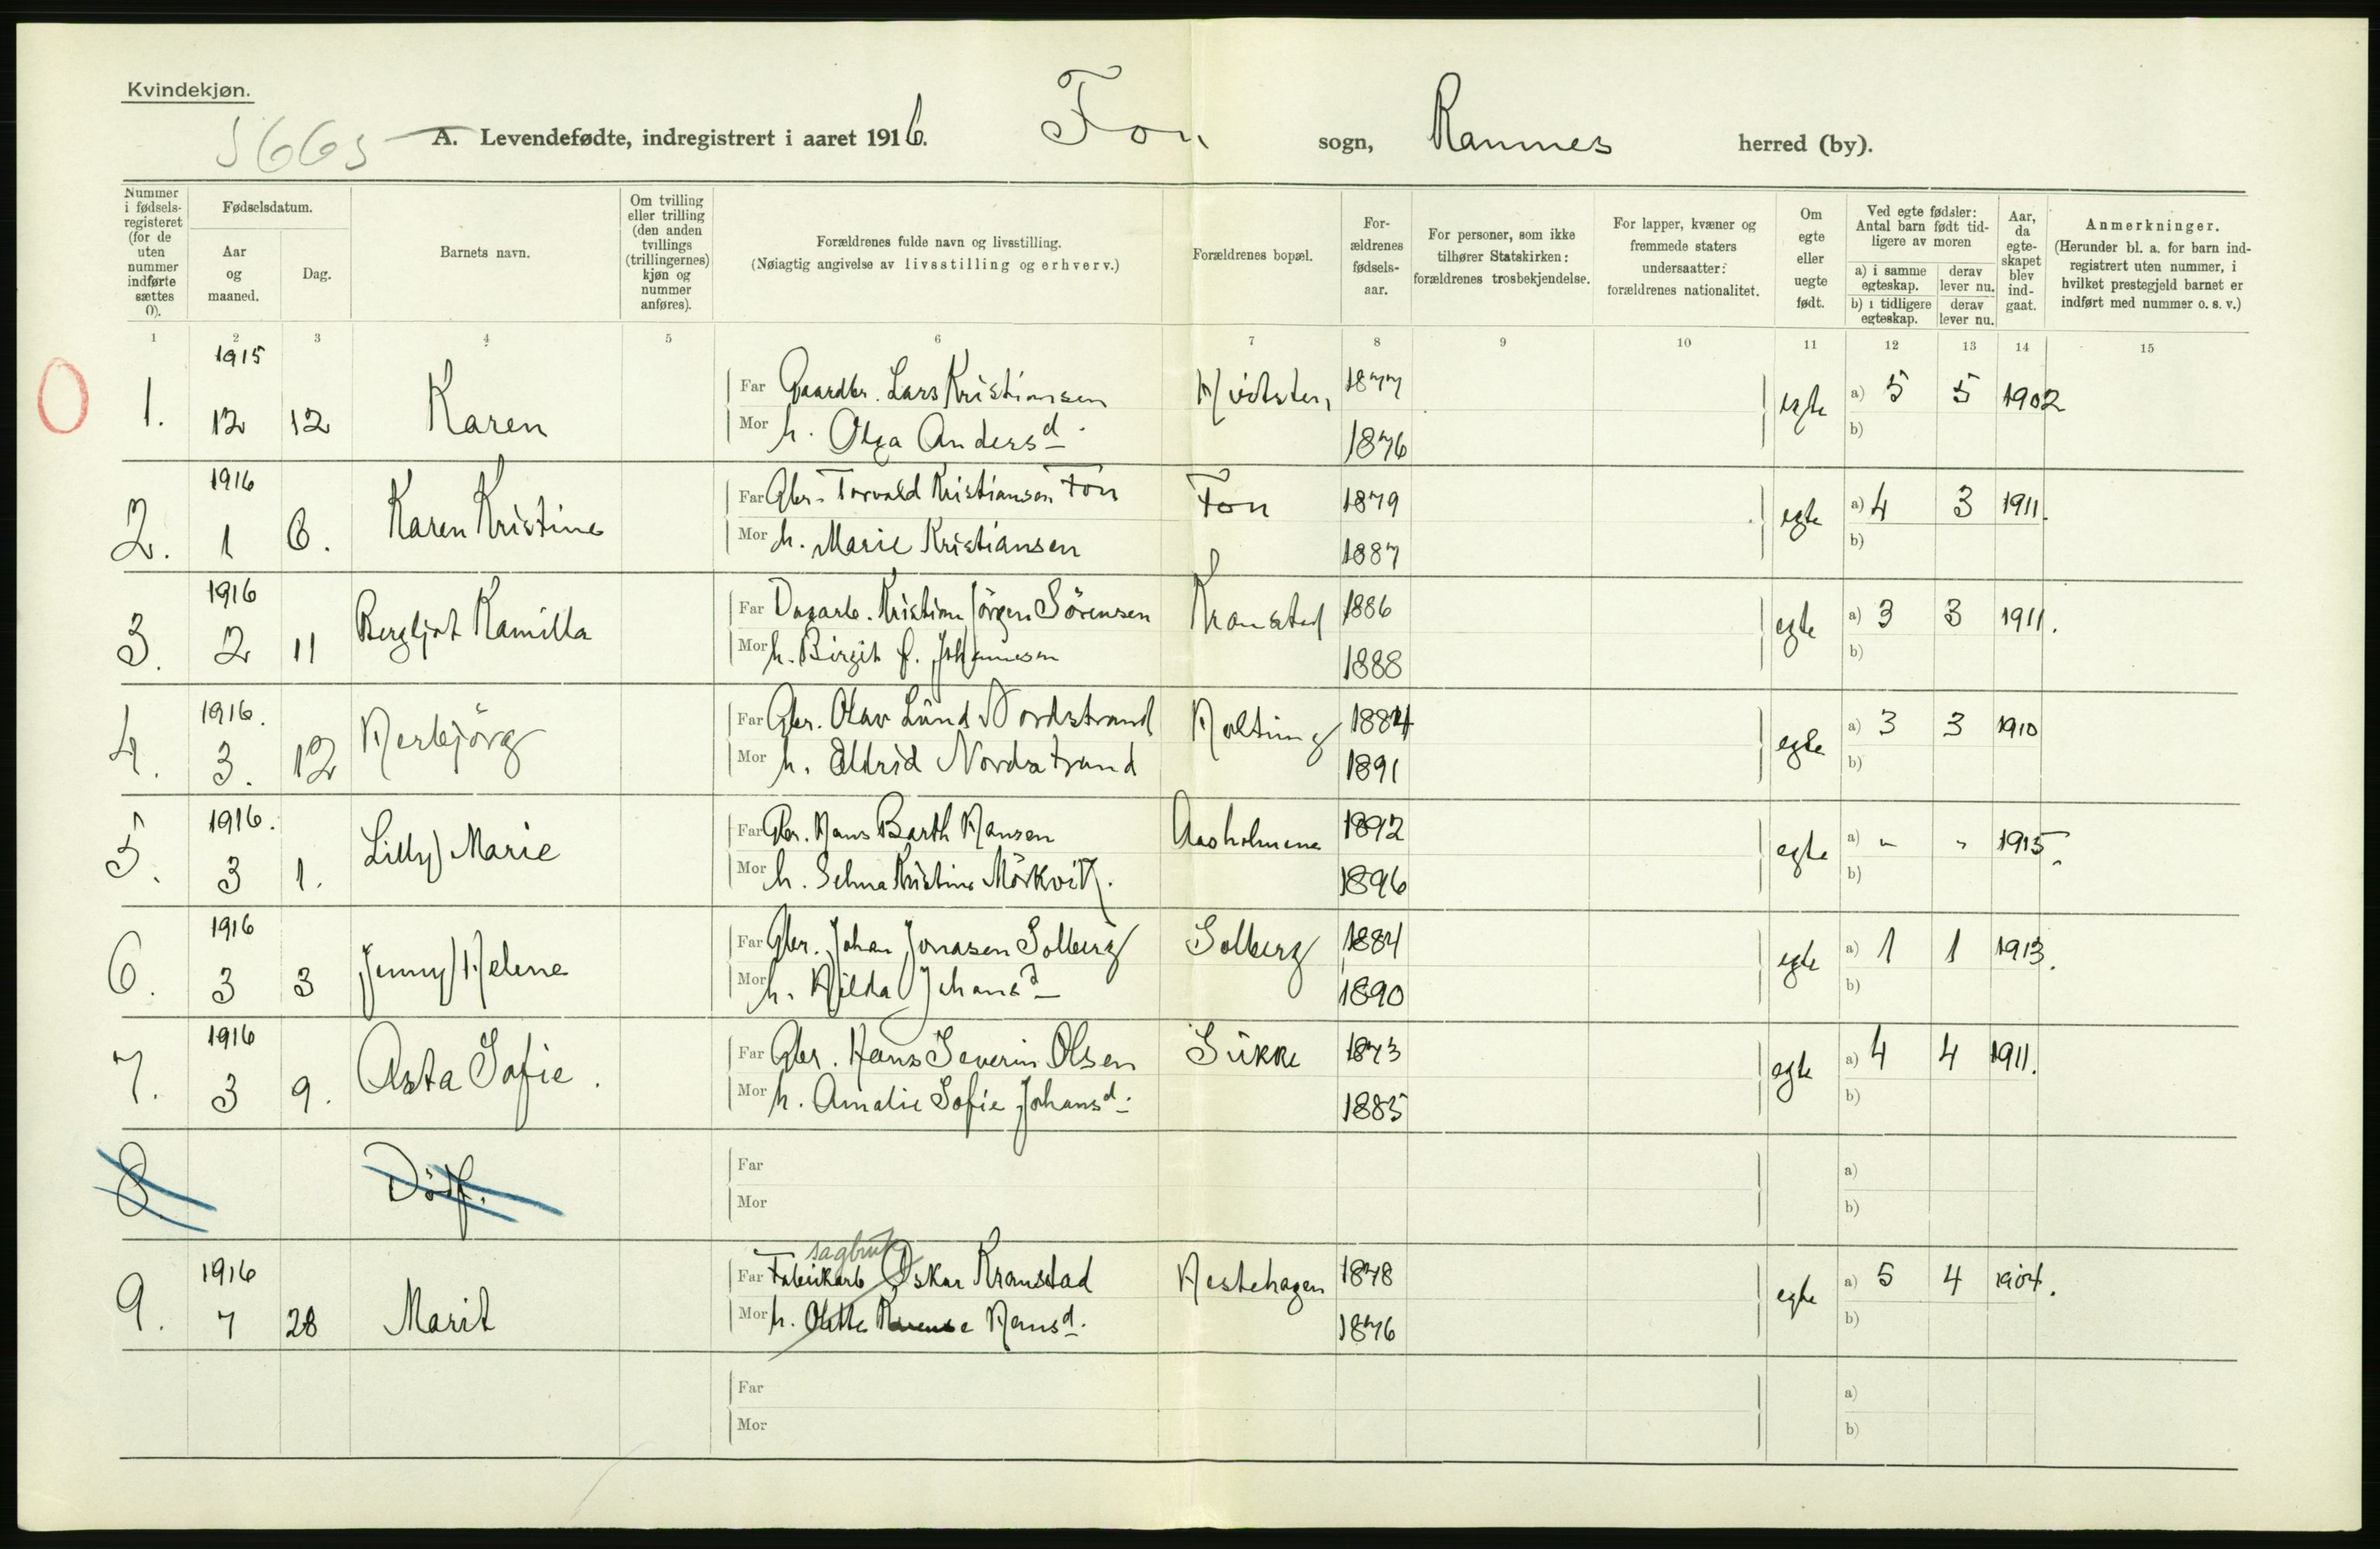 Kvindekjøn.
5663 A. Levendefødte, indregistrert i aaret 1916. Fon sogn, Ramnes herred (by).
Nummer i fødsels-registeret (for de uten nummer indførte sættes 0).
Fødselsdatum.
Aar og maaned.
Dag.
Barnets navn.
Om tvilling eller trilling (den anden tvillings (trillingernes) kjøn og nummer anføres).
Forældrenes fulde navn og livsstilling.
(Nøiagtig angivelse av livsstilling og erhverv.)
Forældrenes bopæl.
For-ældrenes fødsels-aar.
For personer, som ikke tilhører Statskirken: forældrenes trosbekjendelse.
For lapper, kvæner og fremmede staters undersaatter: forældrenes nationalitet.
Om egte eller uegte født.
Ved egte fødsler: Antal barn født tid-ligere av moren
a) i samme egteskap.
derav lever nu.
b) i tidligere egteskap.
derav lever nu.
Aar, da egte-skapet blev ind-gaat.
Anmerkninger.
(Herunder bl. a. for barn ind-registrert uten nummer, i hvilket prestegjeld barnet er indført med nummer o. s. v.)
1 2 3 4 5 6 7 8 9 10 11 12 13 14 15
0
1915
1. 12 12 Karen
Far Gaardbr. Lars Kristiansen Hvitsten 1877 egte a) 5 5 1902
Mor h. Olga Andersd. 1876 b)
1916
2. 1 6. Karen Kristine
Far Gbr. Torvald Kristiansen Fon Fon 1879 egte a) 4 3 1911.
Mor h. Marie Kristiansen 1887 b)
1916
3. 2 11 Bergljot Kamilla
Far Dagarb. Kristian Jörgen Sörensen Kranstad 1886 egte a) 3 3 1911.
Mor h. Birgit f. Johannesen 1888 b)
1916.
4. 3. 12 Herbjörg
Far Gbr. Olav Lund Nordstrand Holtung 1884 egte a) 3 3 1910
Mor h. Eldrid Nordstrand 1891 b)
1916.
5. 3 1. Lilly Marie
Far Gbr. Hans Barth Hansen Aasholmene 1892 egte a) " " 1915.
Mor h. Selma Kristine Mörkvik. 1896 b)
1916
6. 3 3 Jenny Helene
Far Gbr. Johan Jonasen Solberg Solberg 1884 egte a) 1 1 1913.
Mor h. Hilda Johansd. 1890 b)
1916
7. 3 9. Asta Sofie.
Far Gbr. Hans Severin Olsen Sukke 1873 egte a) 4 4 1911.
Mor h. Amalie Sofie Johansd. 1885 b)
8. Dödf.
Far a)
Mor b)
sagbruk
1916
9. 7 28 Marit
Far Fabrikarb Oskar Kranstad Hestehagen 1878 egte a) 5 4 1904.
Mor h. Olette Hansd. 1876 b)
Far a)
Mor b)